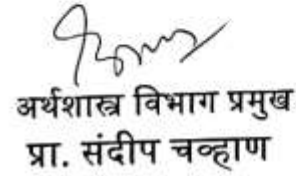 अर्थशास्त्र विभाग प्रमुख
प्रा. संदीप चव्हाण